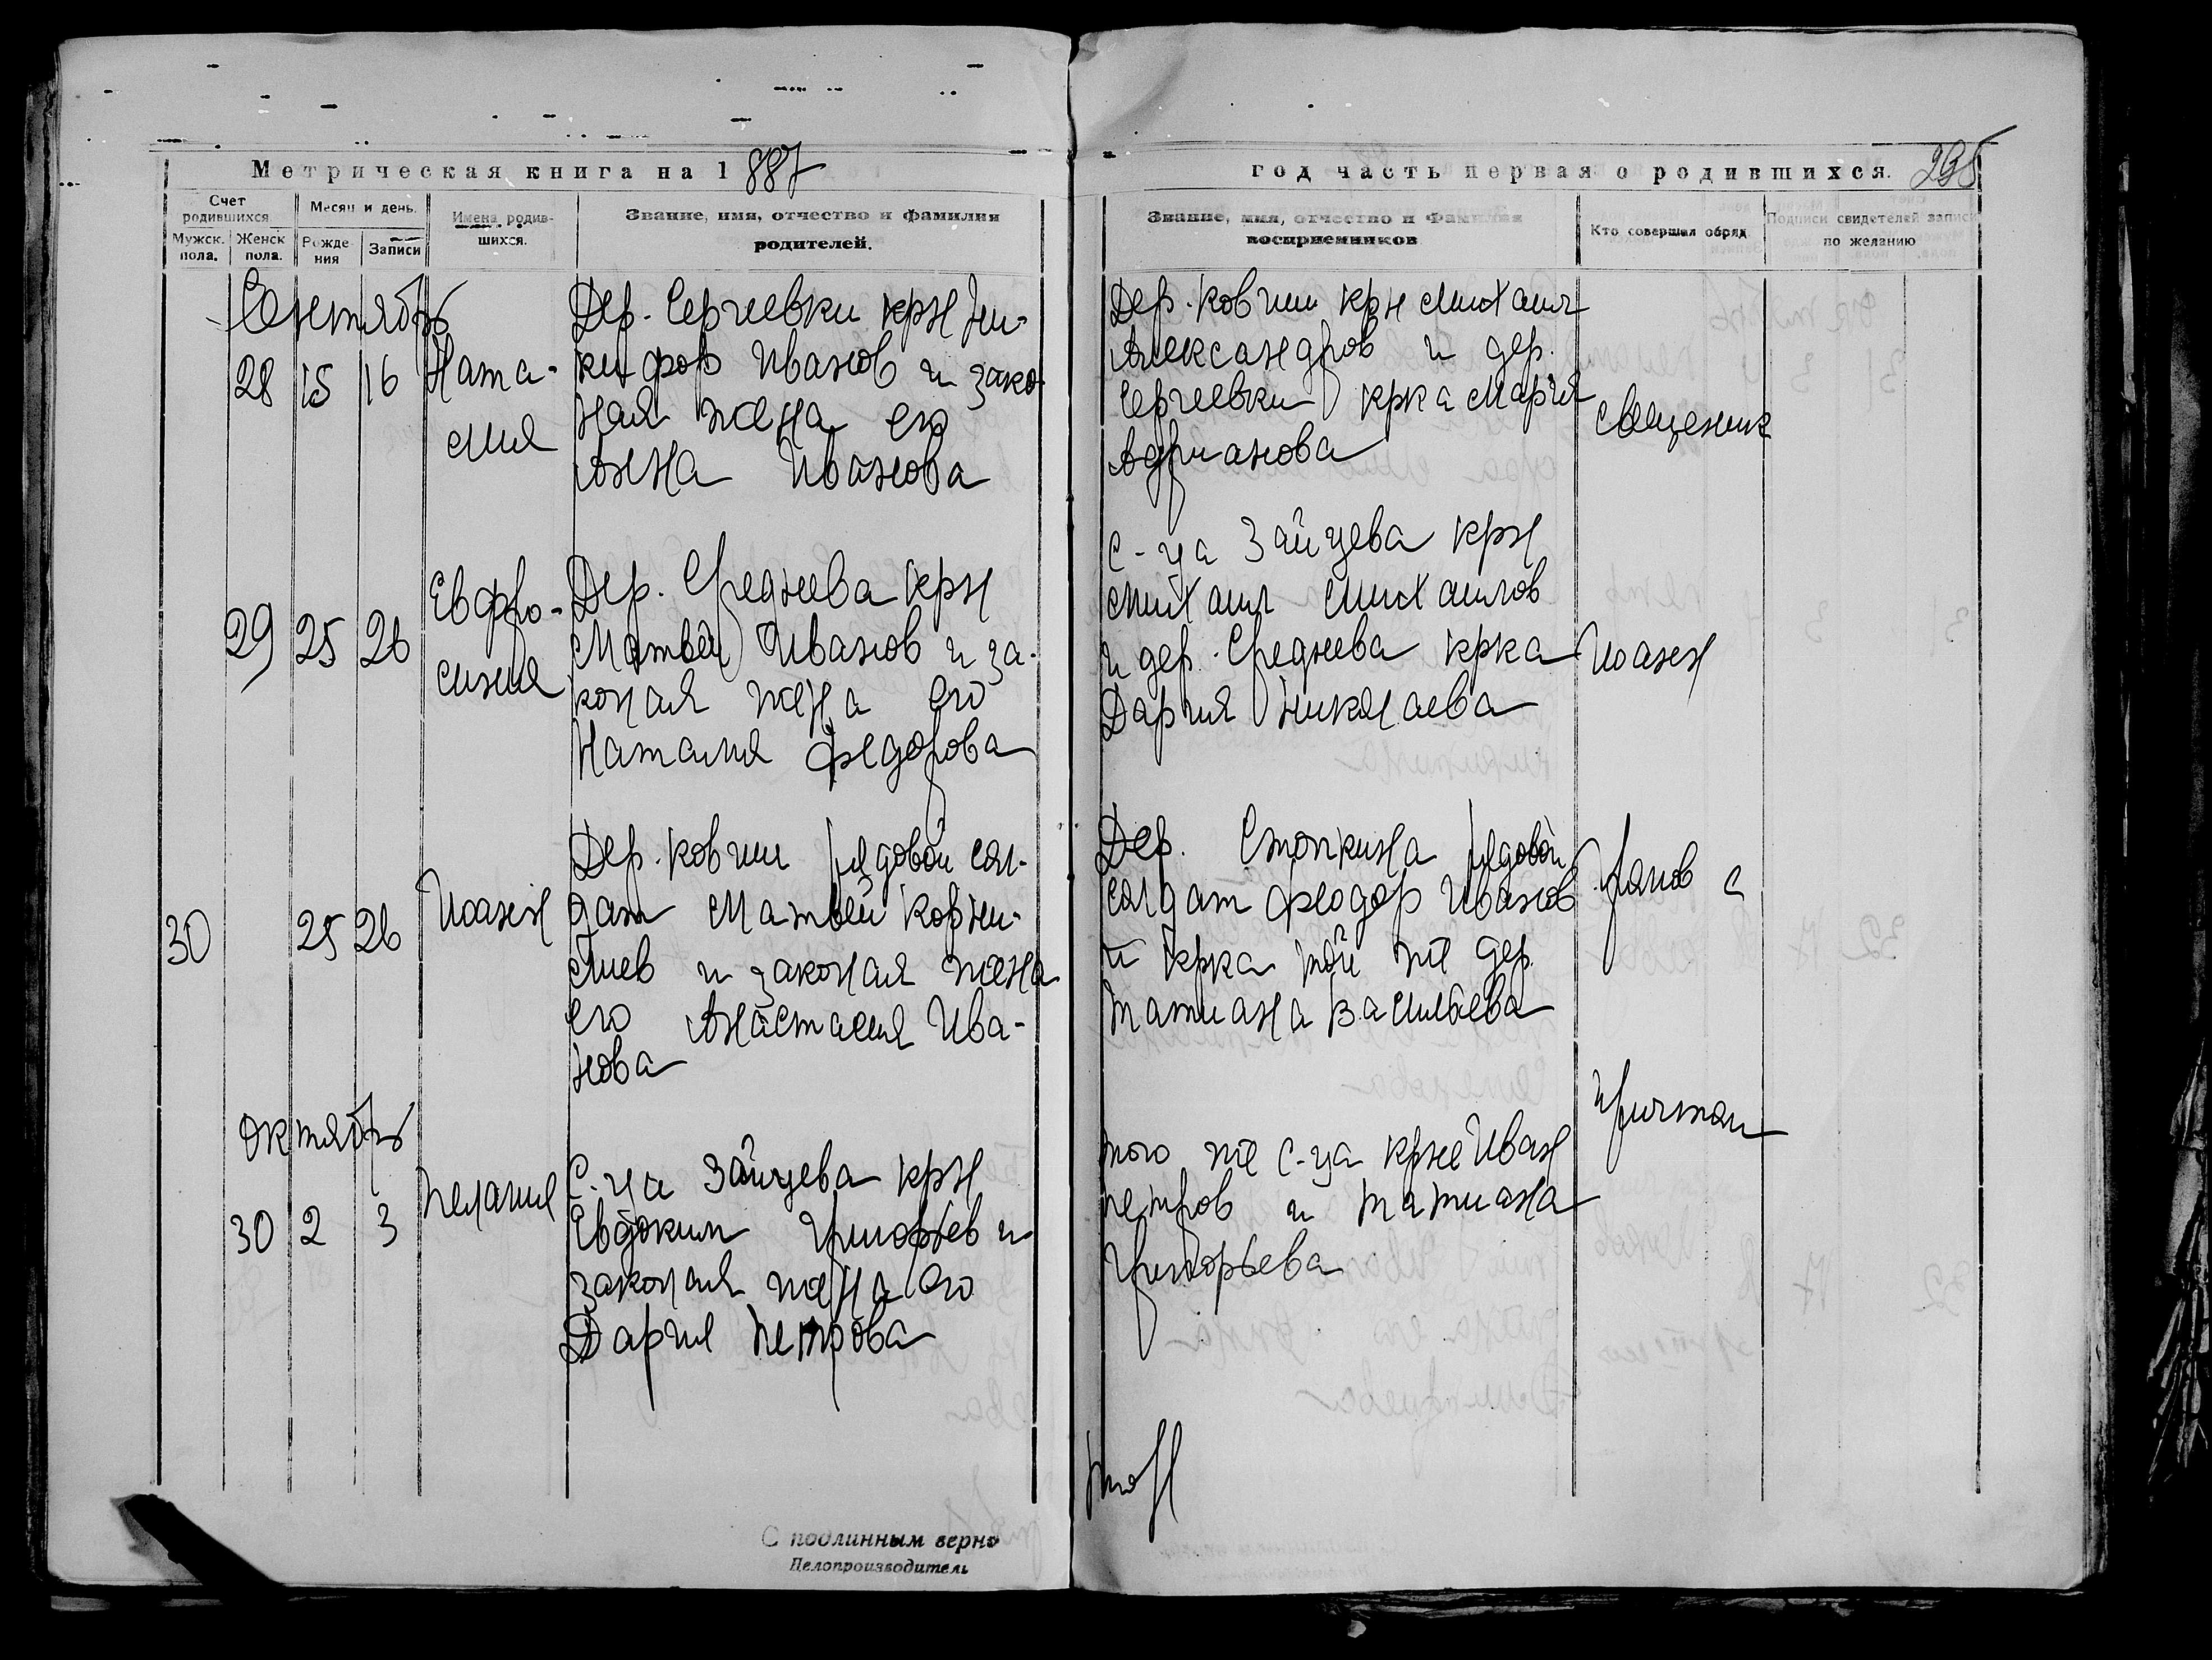 Метрическая книга на 1887
Счет родившихся
Мужск. пола.
Женск пола.
Месяц и день.
Рождения
Записи
Имена родившихся.
Звание, имя, отчество и фамилия
родителей.
Сентябрь
28 15 16
Ната-
лия
Дер. Сергеевки крн Ни-
кифор Иванов и зако
ная жена его
Анна Иванова
29 25 26
Евфро-
синия
Дер. Среднева крн
Матвей Иванов и за-
коная жена его
Наталия Федорова
30 25 26
Иоанн
Дер. Ковши рядовой сол-
дат Матвей Корни-
лиев и законая жена
его Анастасия Ива-
нова
Октябрь
30 2 3
Пелагия
С-ца Зайцева крн
Евдоким Григорьев и
законая жена его
Дария Петрова
С подлинным верно
Делопроизводитель
год часть первая о родившихся. 235
Звание, имя, отчество и Фамилия
восприемников
Кто совершал обряд
Подписи свидетелей записи
по желанию
Дер. Ковши крн Михаил
Александров и дер.
Сергеевки крка Мария
Адрианова
С-ца Зайцева крн
Михаил Михаилов
и дер. Среднева крка
Дария Николаева
Дер. Стопкина рядовой
солдат Феодор Иванов
и крка той же дер.
Татиана Васильева
того же с-ца крне Иван
Петров и Татиана
Григорьева
Священник
Иоанн
с